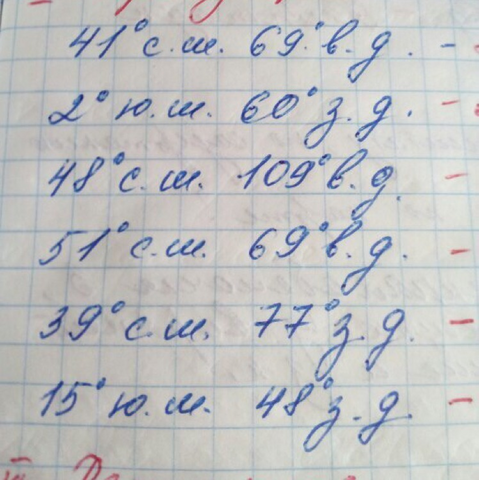 41° с.ш. 69° в.д. -
2° ю.ш. 60° з.д. -
48° с.ш. 109° в.д. -
51° с.ш. 69° в.д. -
39° с.ш. 77° з.д. -
15° ю.ш. 48° з.д. -